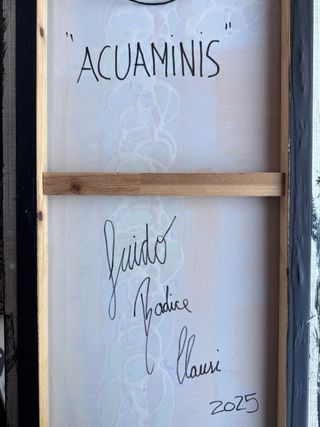 "ACUAMINIS"
Guido
Radice
Clauri
2025